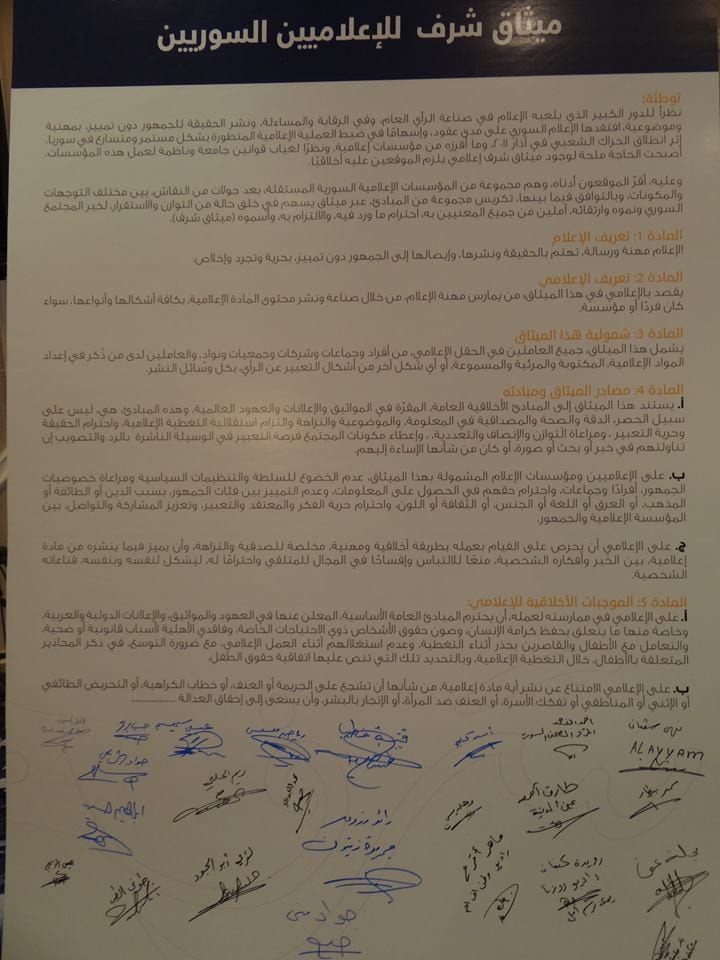 ميثاق شرف للإعلاميين السوريين
توطئة:
نظراً للدور الكبير الذي يلعبه الإعلام في صناعة الرأي العام، وفي الرقابة والمساءلة، ونشر الحقيقة للجمهور دون تمييز، بمهنية
وموضوعية، افتقدها الإعلام السوري على مدى عقود، وإسهامًا في ضبط العملية الإعلامية المتطورة بشكل مستمر ومتسارع في سوريا،
إثر انطلاق الحراك الشعبي في آذار ٢٠١١، وما أفرزه من مؤسسات إعلامية، ونظرًا لغياب قوانين جامعة وناظمة لعمل هذه المؤسسات،
أصبحت الحاجة ملحة لوجود ميثاق شرف إعلامي يلزم الموقعين عليه أخلاقيًا.
وعليه، أقرّ الموقعون أدناه، وهم مجموعة من المؤسسات الإعلامية السورية المستقلة، بعد جولات من النقاش، بين مختلف التوجهات
والمكونات، وبالتوافق فيما بينها، تكريس مجموعة من المبادئ، عبر ميثاق يسهم في خلق حالة من التوازن والاستقرار، لخير المجتمع
السوري ونموه وارتقائه، آملين من جميع المعنيين به، احترام ما ورد فيه، والالتزام به، وأسموه (ميثاق شرف).
المادة 1: تعريف الإعلام
الإعلام مهنة ورسالة، تهتم بالحقيقة ونشرها، وإيصالها إلى الجمهور دون تمييز، بحرية وتجرد وإخلاص.
المادة 2: تعريف الإعلامي
يقصد بالإعلامي في هذا الميثاق: من يمارس مهنة الإعلام، من خلال صناعة ونشر محتوى المادة الإعلامية، بكافة أشكالها وأنواعها، سواء
كان فردًا أو مؤسسة.
المادة 3: شمولية هذا الميثاق
يشمل هذا الميثاق، جميع العاملين في الحقل الإعلامي، من أفراد وجماعات وشركات وجمعيات ونوادٍ، والعاملين لدى من ذُكر في إعداد
المواد الإعلامية، المكتوبة والمرئية والمسموعة، أو أي شكل آخر من أشكال التعبير عن الرأي، بكل وسائل النشر.
المادة 4: مصادر الميثاق ومبادئه
أ. يستند هذا الميثاق إلى المبادئ الأخلاقية العامة، المقرّة في المواثيق والإعلانات والعهود العالمية، وهذه المبادئ، هي، ليس على
سبيل الحصر، الدقة والصحة والمصداقية في المعلومة، والموضوعية والنزاهة والتزام استقلالية التغطية الإعلامية، واحترام الحقيقة
وحرية التعبير ، ومراعاة التوازن والإنصاف والتعددية، ، وإعطاء مكونات المجتمع فرصة التعبير في الوسيلة الناشرة بالرد والتصويب إن
تناولتهم في خبر أو بحث أو صورة، أو كان من شأنها الإساءة إليهم.
ب. على الإعلاميين ومؤسسات الإعلام المشمولة بهذا الميثاق، عدم الخضوع للسلطة والتنظيمات السياسية ومراعاة خصوصيات
الجمهور، أفرادًا وجماعات، واحترام حقهم في الحصول على المعلومات، وعدم التمييز بين فئات الجمهور، بسبب الدين أو الطائفة أو
المذهب، أو العرق أو اللغة أو الجنس، أو الثقافة أو اللون، واحترام حرية الفكر والمعتقد والتعبير، وتعزيز المشاركة والتواصل، بين
المؤسسة الإعلامية والجمهور.
ج. على الإعلامي أن يحرص على القيام بعمله بطريقة أخلاقية ومهنية، مخلصة للصدقية والنزاهة، وأن يميز فيما ينشره من مادة
إعلامية، بين الخبر وأفكاره الشخصية، منعًا للالتباس وإفساحًا في المجال للمتلقي واحترامًا له، ليشكل لنفسه وبنفسه، قناعاته
الشخصية.
المادة 5: الموجبات الأخلاقية للإعلامي:
أ. على الإعلامي في ممارسته لعمله، أن يحترم المبادئ العامة الأساسية، المعلن عنها في العهود والمواثيق، والإعلانات الدولية والعربية،
وخاصة منها ما يتعلق بحفظ كرامة الإنسان، وصون حقوق الأشخاص ذوي الاحتياجات الخاصة، وفاقدي الأهلية لأسباب قانونية أو صحية،
والتعامل مع الأطفال والقاصرين بحذر أثناء التغطية، وعدم استغلالهم أثناء العمل الإعلامي، مع ضرورة التوسع، في ذكر المحاذير
المتعلقة بالأطفال، خلال التغطية الإعلامية، وبالتحديد تلك التي تنص عليها اتفاقية حقوق الطفل.
ب. على الإعلامي الامتناع عن نشر أية مادة إعلامية، من شأنها أن تشجع على الجريمة أو العنف، أو خطاب الكراهية، أو التحريض الطائفي
أو الإثني أو المناطقي أو تفكك الأسرة، أو العنف ضد المرأة، أو الإتجار بالبشر، وأن يسعى إلى إحقاق العدالة
ALAYYAM
طارق
عين المدينة
رائد
جريدة زيتون
ابراهيم
لؤي أبو الجود
جواد